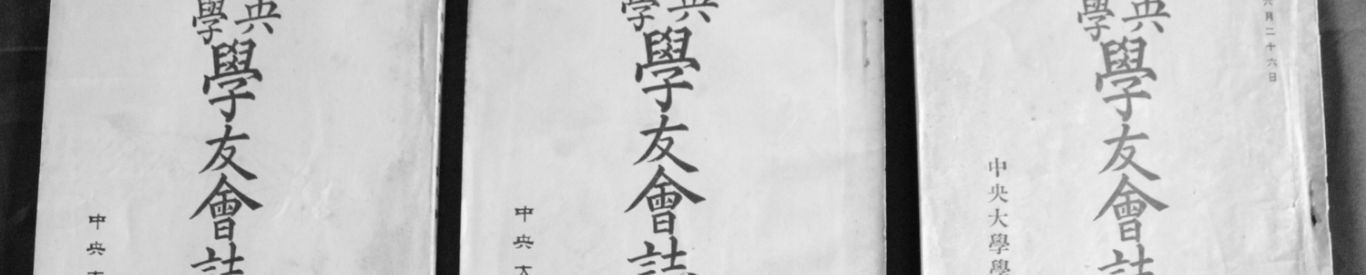 央
學
學友會誌
中央大
央
學
學友會誌
中央大
六月二十六日
央
學
學友會誌
中央大學學